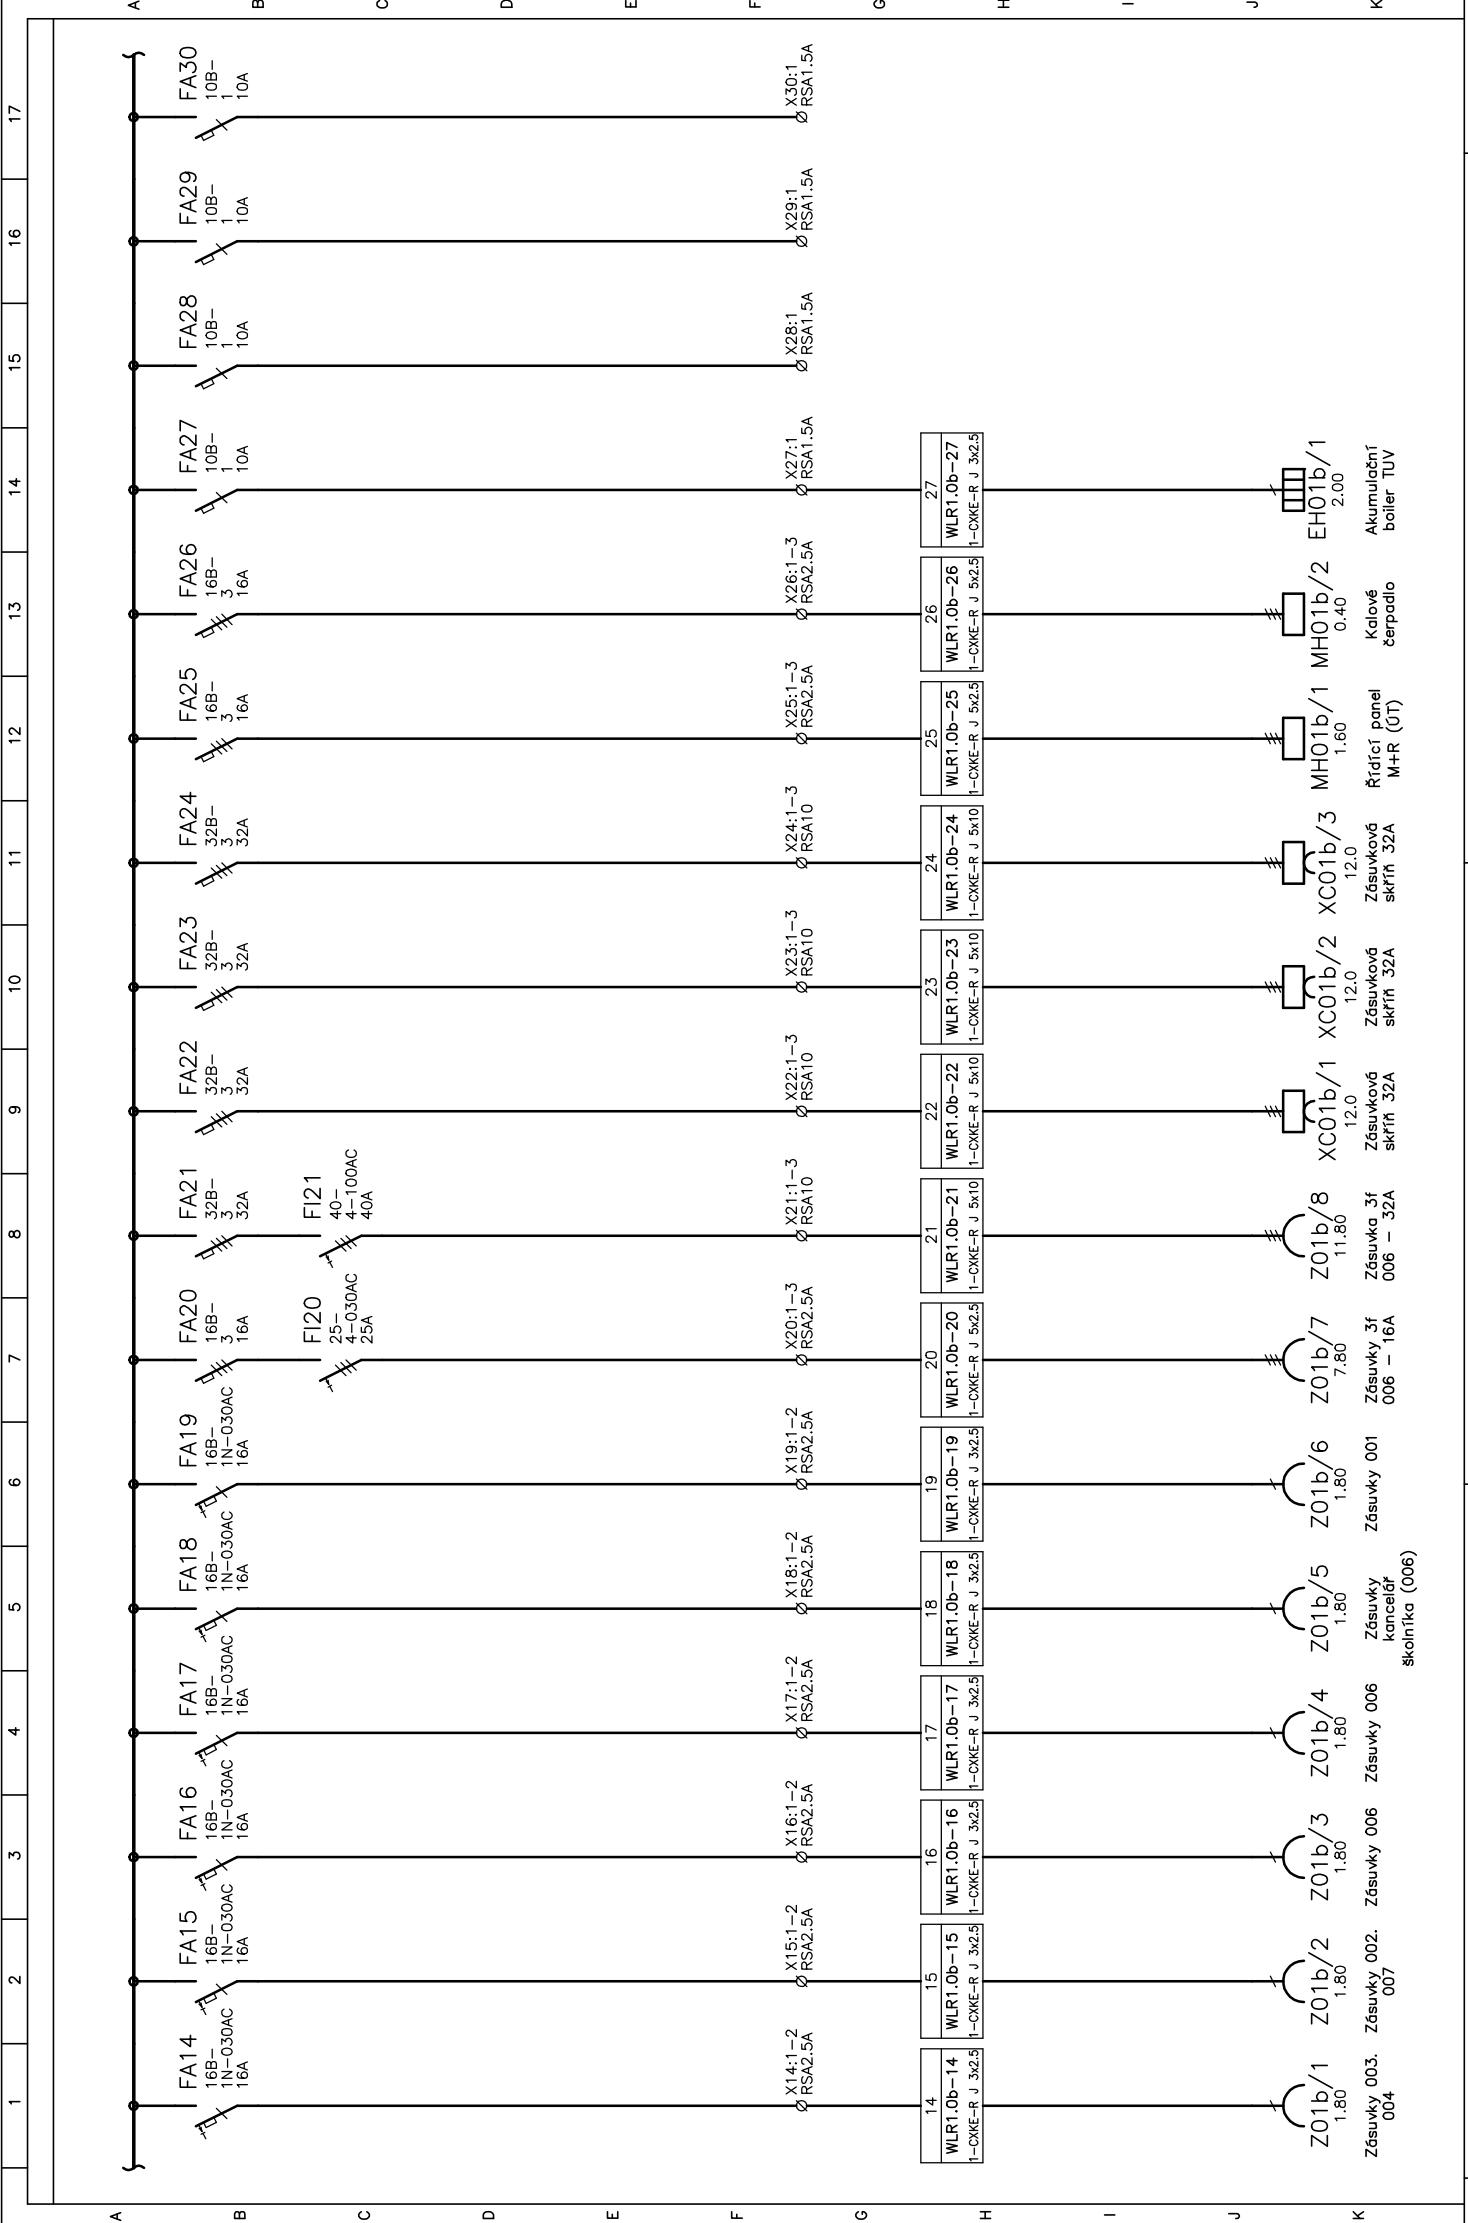 1 2 3 4 5 6 7 8 9 10 11 12 13 14 15 16 17
A
B
C
D
E
F
G
H
I
J
K
A
B
C
D
E
F
G
H
I
J
K
FA14
16B-
1N-030AC
16A
X14:1-2
RSA2.5A
14
WLR1.0b-14
1-CXKE-R J 3x2.5
Z01b/1
1.80
Zásuvky 003.
004
FA15
16B-
1N-030AC
16A
X15:1-2
RSA2.5A
15
WLR1.0b-15
1-CXKE-R J 3x2.5
Z01b/2
1.80
Zásuvky 002.
007
FA16
16B-
1N-030AC
16A
X16:1-2
RSA2.5A
16
WLR1.0b-16
1-CXKE-R J 3x2.5
Z01b/3
1.80
Zásuvky 006
FA17
16B-
1N-030AC
16A
X17:1-2
RSA2.5A
17
WLR1.0b-17
1-CXKE-R J 3x2.5
Z01b/4
1.80
Zásuvky 006
FA18
16B-
1N-030AC
16A
X18:1-2
RSA2.5A
18
WLR1.0b-18
1-CXKE-R J 3x2.5
Z01b/5
1.80
Zásuvky
kancelář
školníka (006)
FA19
16B-
1N-030AC
16A
X19:1-2
RSA2.5A
19
WLR1.0b-19
1-CXKE-R J 3x2.5
Z01b/6
1.80
Zásuvky 001
FA20
16B-
3
16A
FI20
25-
4-030AC
25A
X20:1-3
RSA2.5A
20
WLR1.0b-20
1-CXKE-R J 5x2.5
Z01b/7
7.80
Zásuvky 3f
006 - 16A
FA21
32B-
3
32A
FI21
40-
4-100AC
40A
X21:1-3
RSA10
21
WLR1.0b-21
1-CXKE-R J 5x10
Z01b/8
11.80
Zásuvka 3f
006 - 32A
FA22
32B-
3
32A
X22:1-3
RSA10
22
WLR1.0b-22
1-CXKE-R J 5x10
XC01b/1
12.0
Zásuvková
skříň 32A
FA23
32B-
3
32A
X23:1-3
RSA10
23
WLR1.0b-23
1-CXKE-R J 5x10
XC01b/2
12.0
Zásuvková
skříň 32A
FA24
32B-
3
32A
X24:1-3
RSA10
24
WLR1.0b-24
1-CXKE-R J 5x10
XC01b/3
12.0
Zásuvková
skříň 32A
FA25
16B-
3
16A
X25:1-3
RSA2.5A
25
WLR1.0b-25
1-CXKE-R J 5x2.5
MH01b/1
1.60
Řídící panel
M+R (ÚT)
FA26
16B-
3
16A
X26:1-3
RSA2.5A
26
WLR1.0b-26
1-CXKE-R J 5x2.5
MH01b/2
0.40
Kalové
čerpadlo
FA27
10B-
1
10A
X27:1
RSA1.5A
27
WLR1.0b-27
1-CXKE-R J 3x2.5
EH01b/1
2.00
Akumulační
boiler TUV
FA28
10B-
1
10A
X28:1
RSA1.5A
FA29
10B-
1
10A
X29:1
RSA1.5A
FA30
10B-
1
10A
X30:1
RSA1.5A